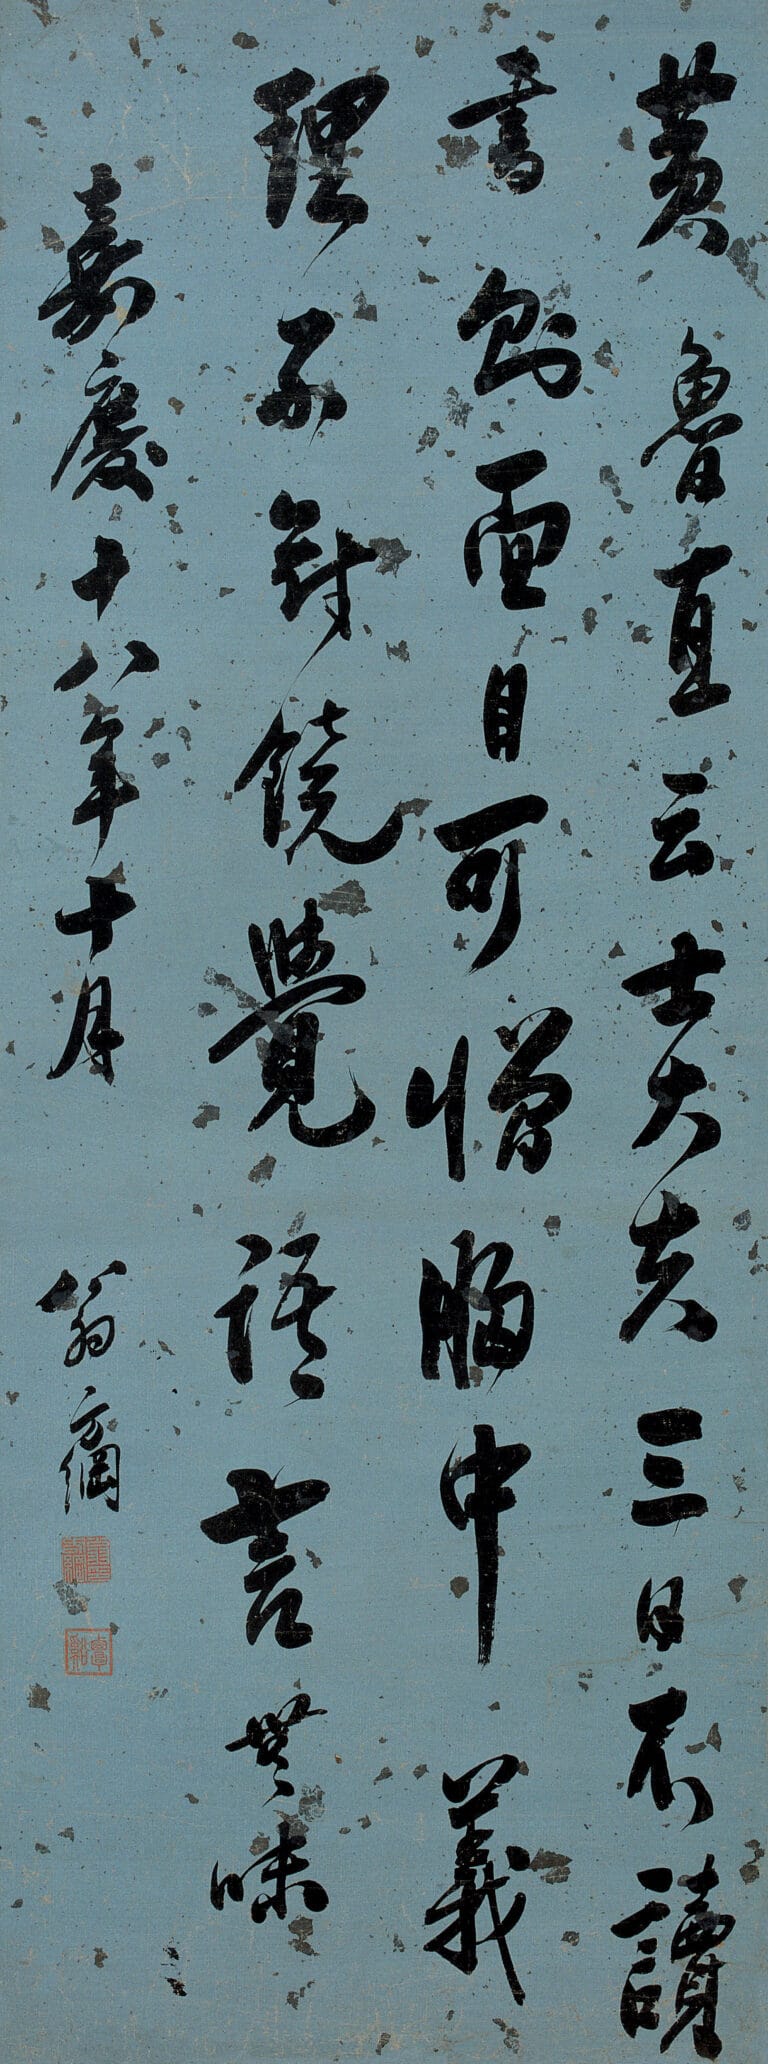 黄魯直云士大夫三日不讀
書則面目可憎胸中義
理不對鏡覺語言無味
嘉慶十八年十月 翁方綱